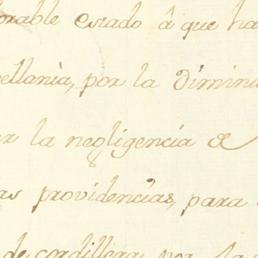 orable estado â que ha
ellania, por la Diminu
ar la negligencia de
as providencias, para
de cordillera por la